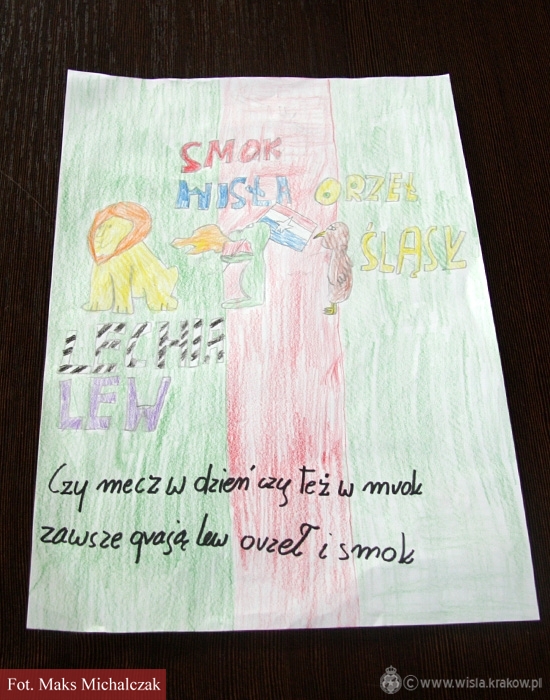 SMOK
WISŁA ORZEŁ
ŚLĄSK
LECHIA
LEW
Czy mecz w dzień czy też w mrok
zawsze grają lew orzeł i smok
Fot. Maks Michalczak
© www.wisla.krakow.pl